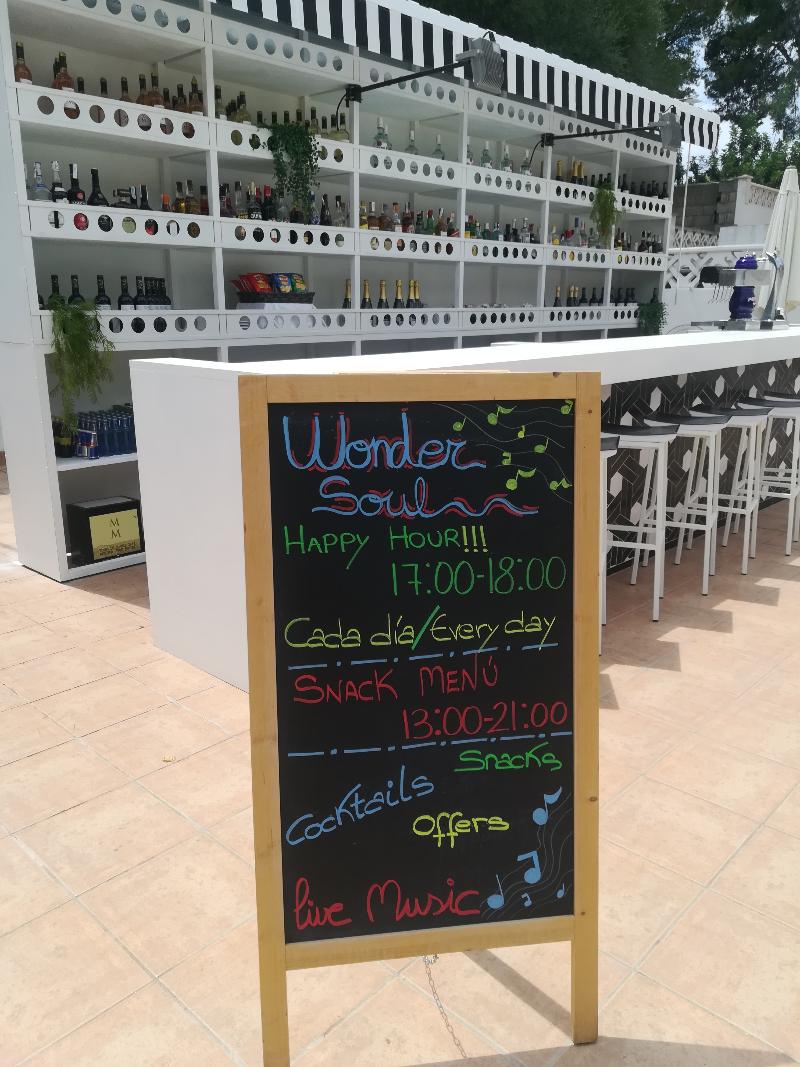 Wonder
Soul
HAPPY HOUR!!!
17:00-18:00
Cada día/Every day
SNACK MENÚ
13:00-21:00
Snacks
Cocktails
Offers
live Music
M
M